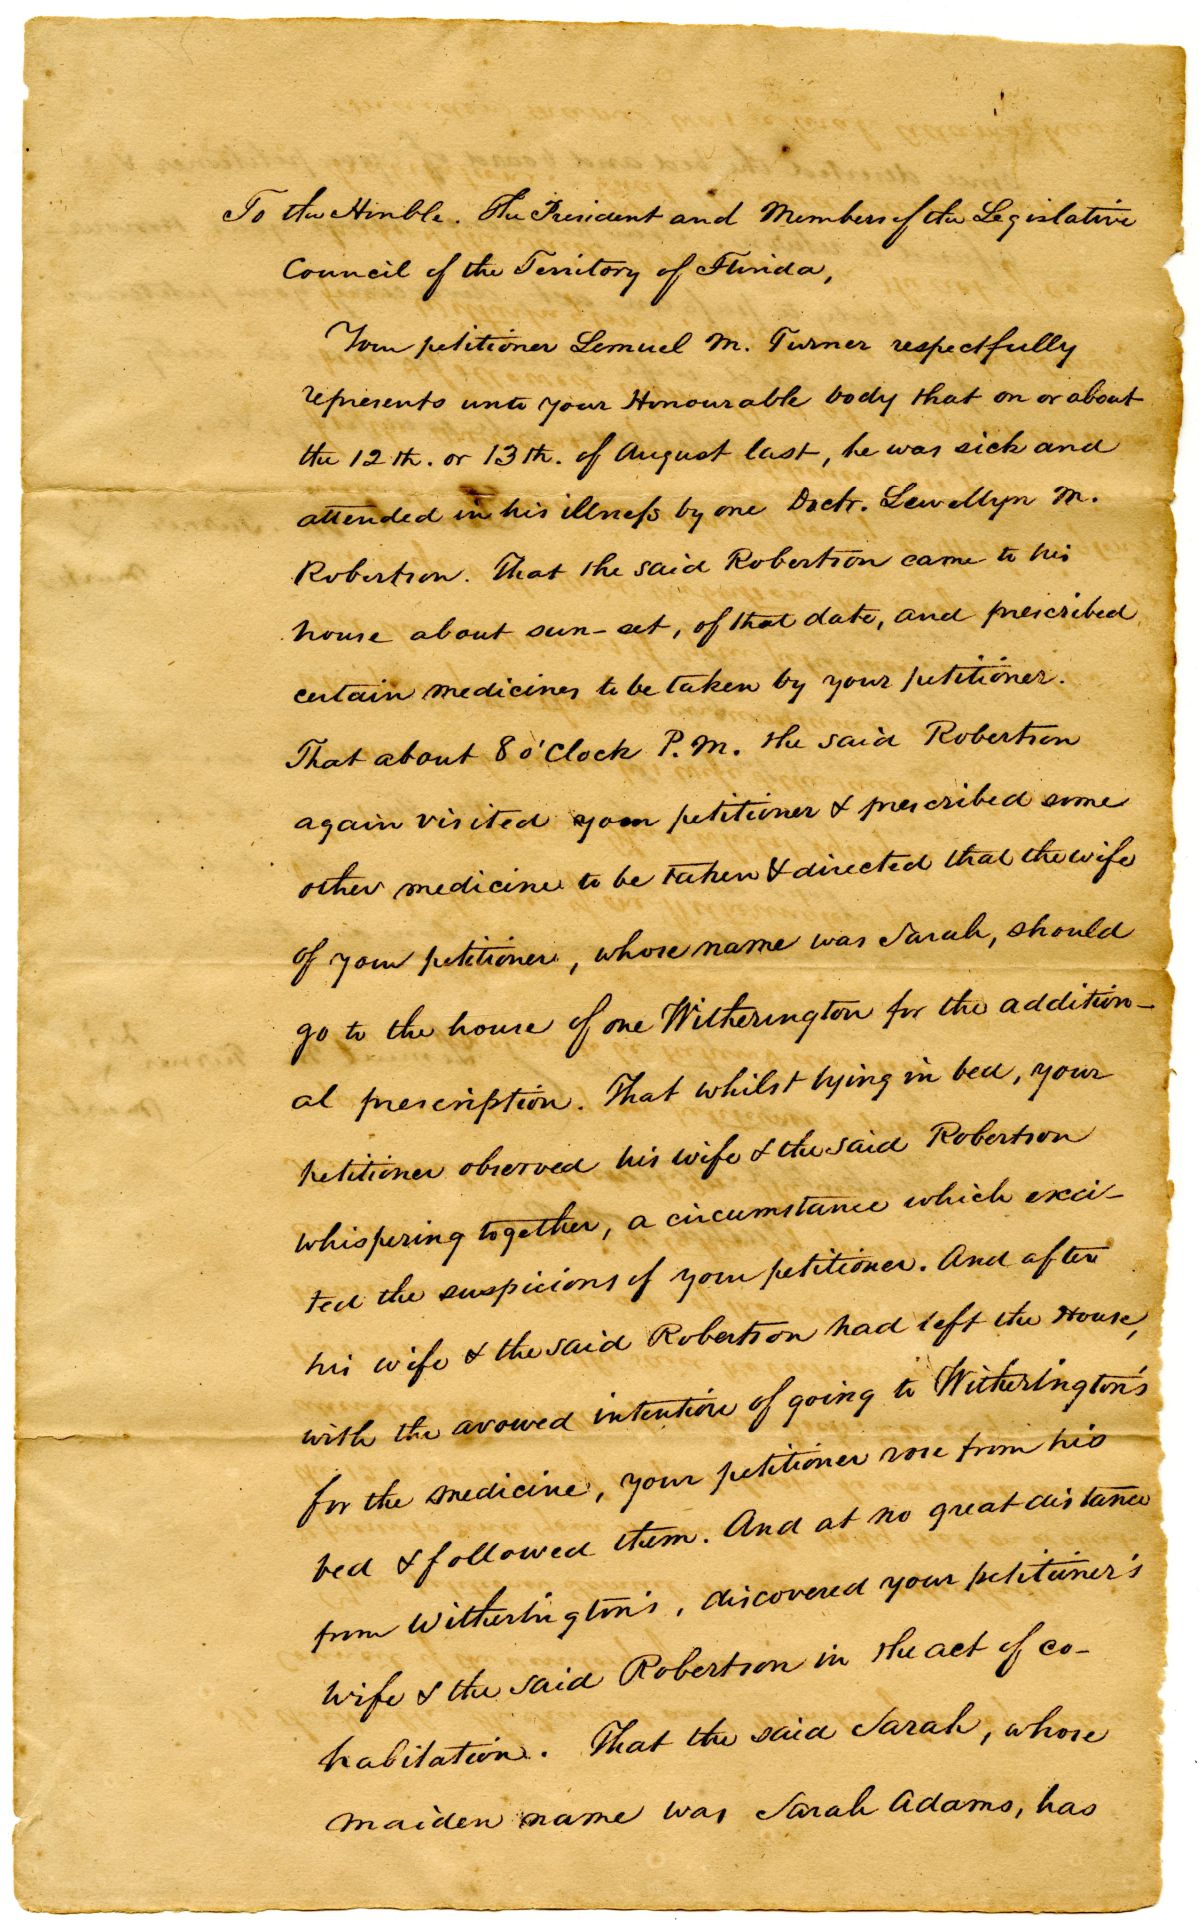 To the Honble. The President and Members of the Legislative
Council of the Territory of Florida,
Your petitioner Lemuel M. Turner respectfully
represents unto your Honourable body that on or about
the 12th. or 13th. of August last, he was sick and
attended in his illness by one Doctr. Lewellyn M.
Robertson. That the said Robertson came to his
house about sun-set, of that date, and prescribed
certain medicines to be taken by your petitioner.
That about 8 o'Clock P.M. the said Robertson
again visited your petitioner & prescribed some
other medicine to be taken & directed that the wife
of your petitioner, whose name was Sarah, should
go to the house of one Witherington for the addition-
al prescription. That whilst lying in bed, your
petitioner observed his wife & the said Robertson
whispering together, a circumstance which exci-
ted the suspicions of your petitioner. And after
his wife & the said Robertson had left the House,
with the avowed intention of going to Witherington's
for the medicine, your petitioner rose from his
bed & followed them. And at no great distance
from Witherington's, discovered your petitioner's
wife & the said Robertson in the act of co-
habitation. That the said Sarah, whose
maiden name was Sarah Adams, has